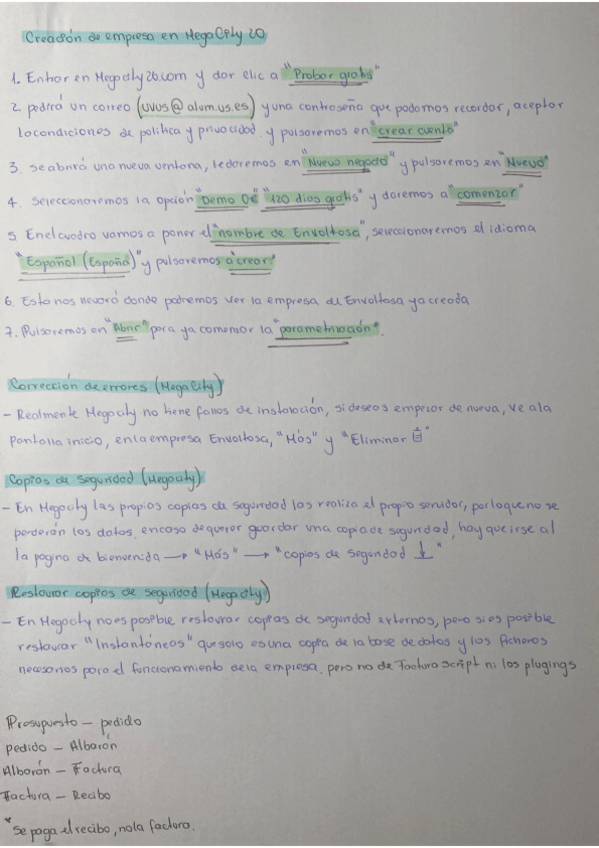 Creación de empresa en MegaCity 20
1. Entrar en Megacity20.com y dar clic a "Probar gratis"
2. pedirá un correo (uvus@alum.us.es) y una contraseña que podamos recordar, aceptar
la condiciones de política y privacidad y pulsaremos en "crear cuenta"
3. Se abrirá una nueva ventana, le daremos en "Nuevo negocio" y pulsaremos en "Nuevo"
4. Seleccionaremos la opción "Demo 0€" "120 días gratis" y daremos a "comenzar"
5. En el cuadro vamos a poner el "nombre de Envaltosa", seleccionaremos el idioma
"Español (España)" y pulsaremos a "crear"
6. Esto nos llevará donde podremos ver la empresa de Envaltosa ya creada
7. Pulsaremos en "Abrir" para ya comenzar la "parametrización".
Corrección de errores (MegaCity)
- Realmente Megacity no tiene fallos de instalación, si deseas empezar de nuevo, ve a la
pantalla inicio, en la empresa Envaltosa, "Más" y "Eliminar 🗑"
Copias de seguridad (Megacity)
- En Megacity las propias copias de seguridad las realiza el propio servidor, por lo que no se
perderán los datos, en caso de querer guardar una copia de seguridad, hay que irse al
la pagina de bienvenida → "Más" → "copias de seguridad ↓"
Restaurar copias de seguridad (Megacity)
- En Megacity no es posible restaurar copias de seguridad externas, pero si es posible
restaurar "Instantáneas" que solo es una copia de la base de datos y los ficheros
necesarios para el funcionamiento de la empresa, pero no de Factura Script ni los plugings
Presupuesto - pedido
pedido - Albarán
Albarán - Factura
Factura - Recibo
*Se paga el recibo, no la factura.